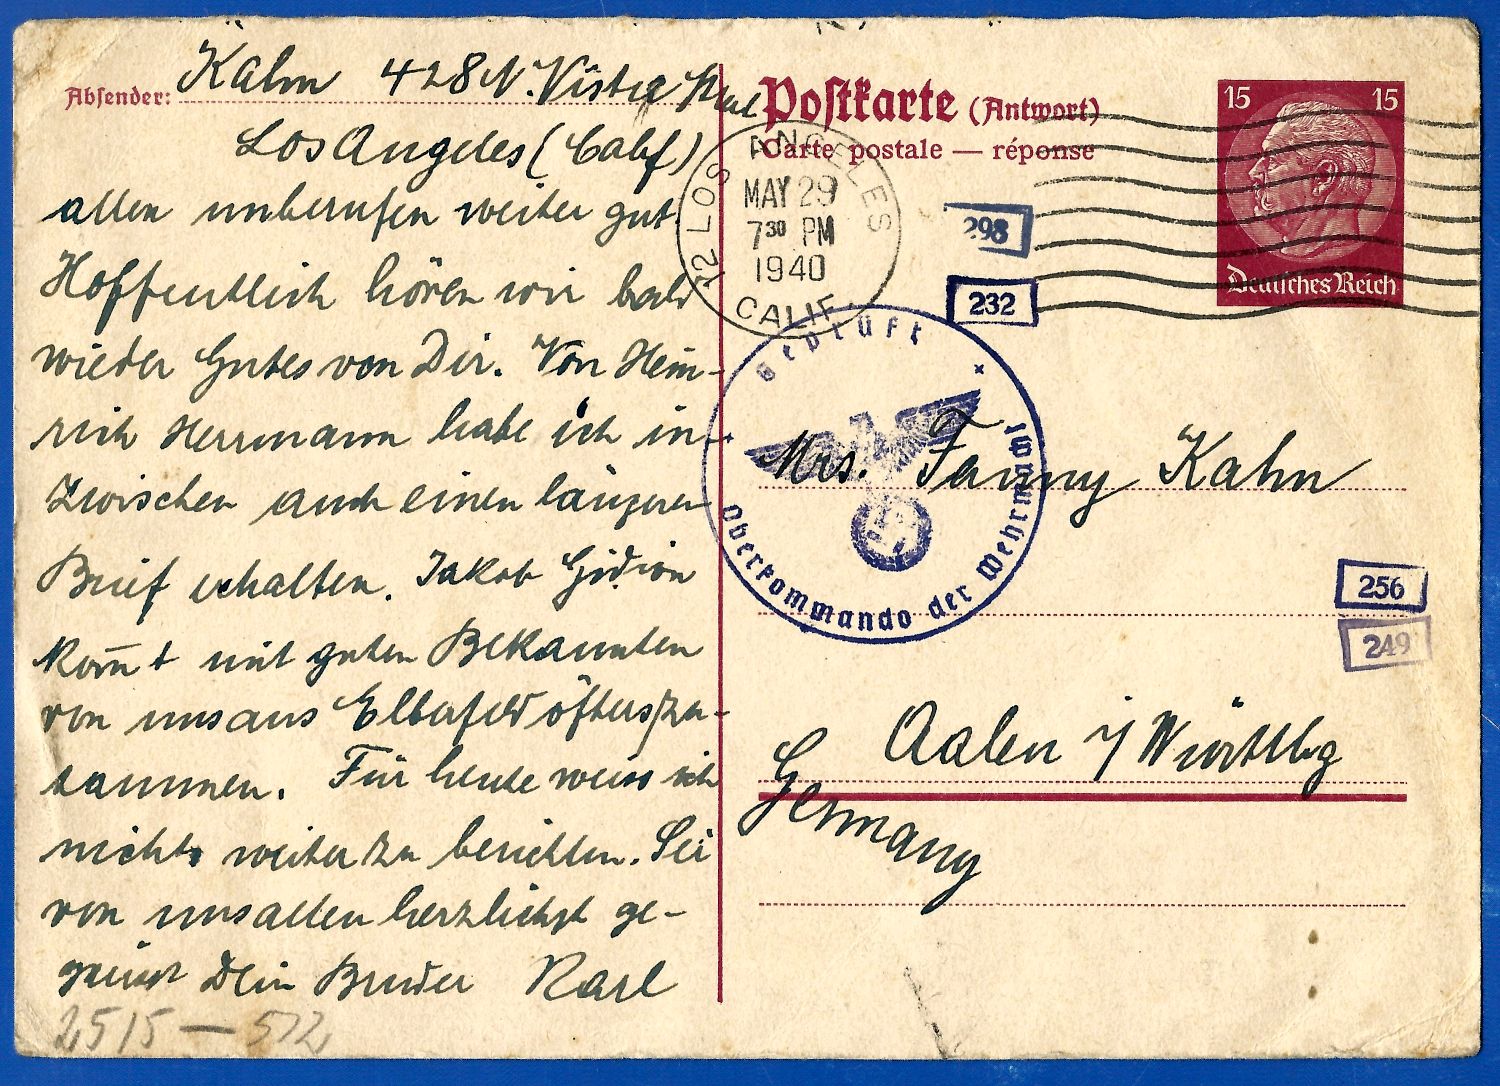 Absender: Kahn 428 N. Vista
Los Angeles (Calif)
allen unberufen weiter gut.
Hoffentlich hören wir bald
wieder Gutes von Dir. Von Hein-
rich Herrmann habe ich in-
zwischen auch einen längeren
Brief erhalten. Jakob Gidion
kom̄t mit guten Bekannten
von uns aus Elberfeld öfters zu-
sammen. Für heute weiss ich
nichts weiter zu berichten. Sei
von uns allen herzlichst ge-
grüsst Dein Bruder Karl
2515 — 512
Postkarte (Antwort)
Carte postale — réponse
15 15
Deutsches Reich
12 LOS ANGELES
MAY 29
7 30 PM
1940
CALIF.
298
232
Geprüft
Oberkommando der Wehrmacht
Mrs. Fanny Kahn
256
249
Aalen i/Württbg
Germany